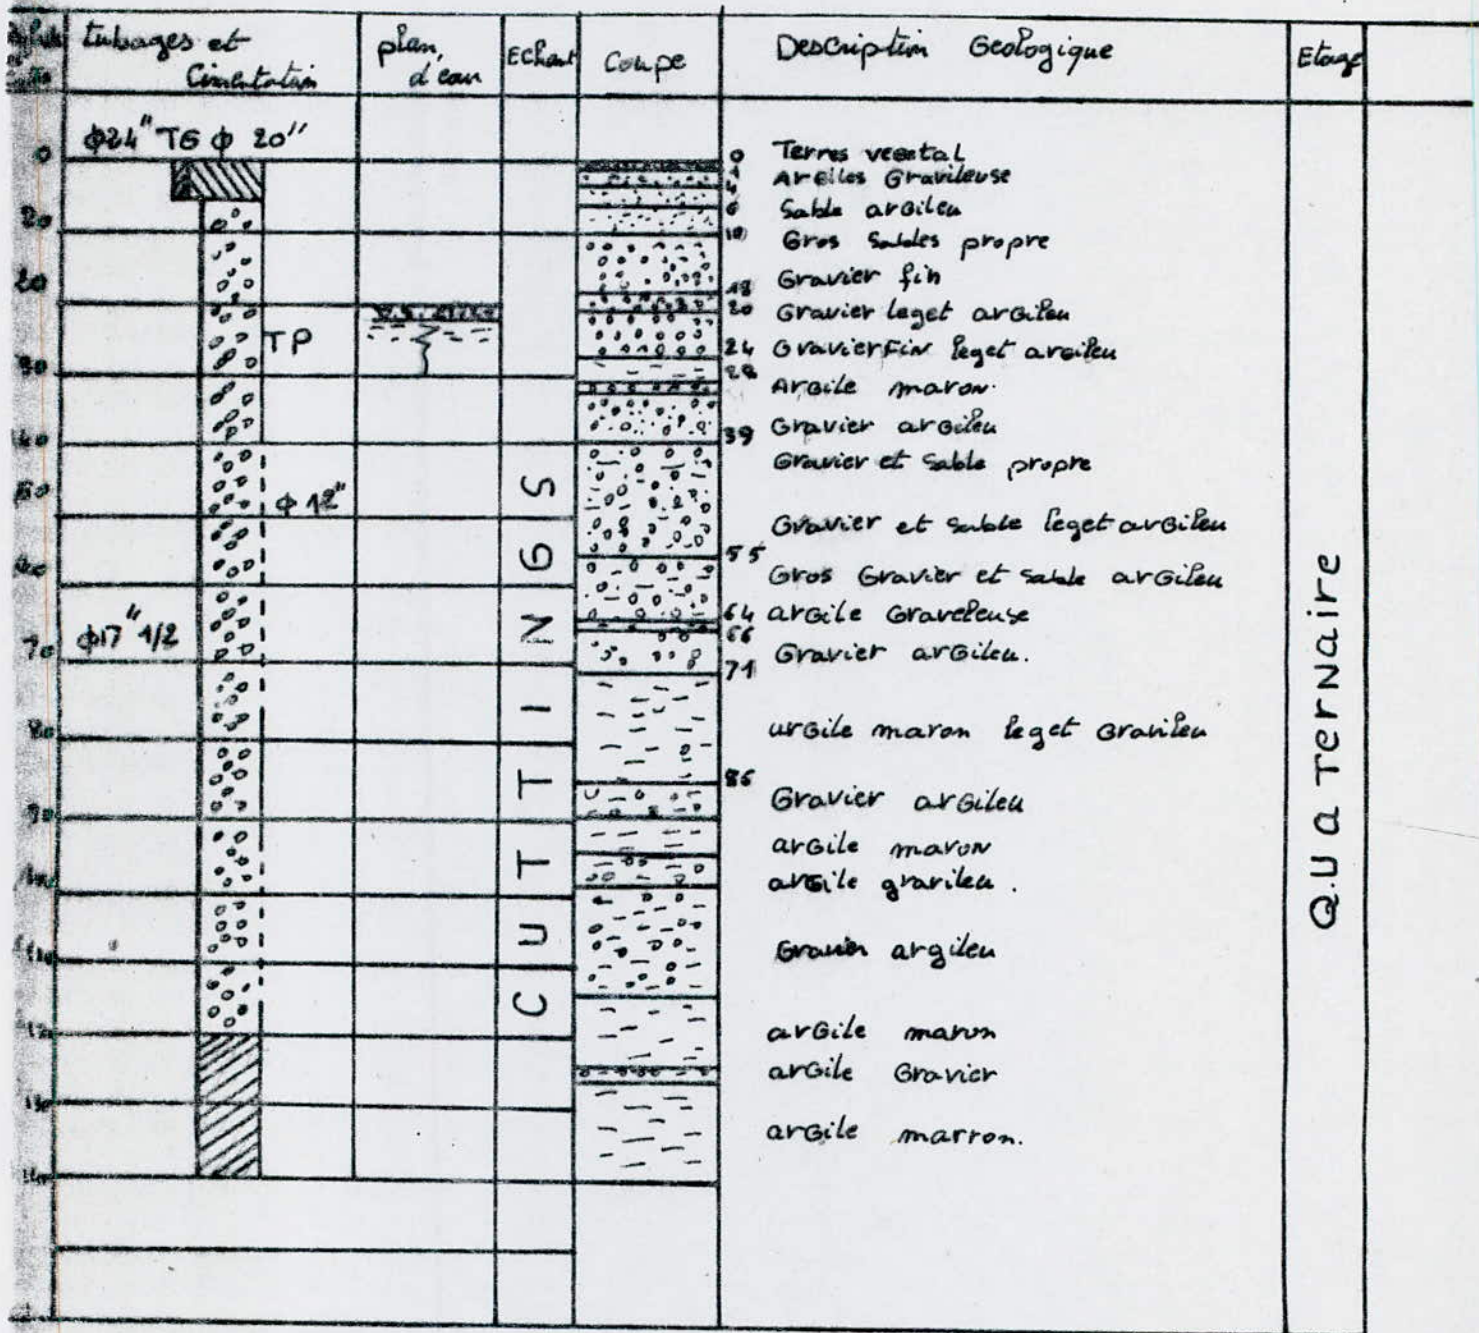 tubages et
Cimentation
plan,
d'eau
Echant
Coupe
Description Geologique
Etage
Φ24" TG Φ 20"
0
20
20
30
40
50
70
TP
Φ 12"
Φ17" 1/2
CUTTINGS
0
1
4
6
10
18
20
24
28
39
55
64
66
71
86
Terres vegetal
Argiles Gravileuse
Sable argileu
Gros Sables propre
Gravier fin
Gravier leget argileu
Gravier FiN leget argileu
Argile maron
Gravier argileu
Gravier et Sable propre
Gravier et Sable leget argileu
Gros Gravier et Sable argileu
argile Graveleuse
Gravier argileu.
argile maron leget Gravileu
Gravier argileu
argile maron
argile gravileu .
argileu
argile maron
argile Gravier
argile marron.
QUaTerNaire